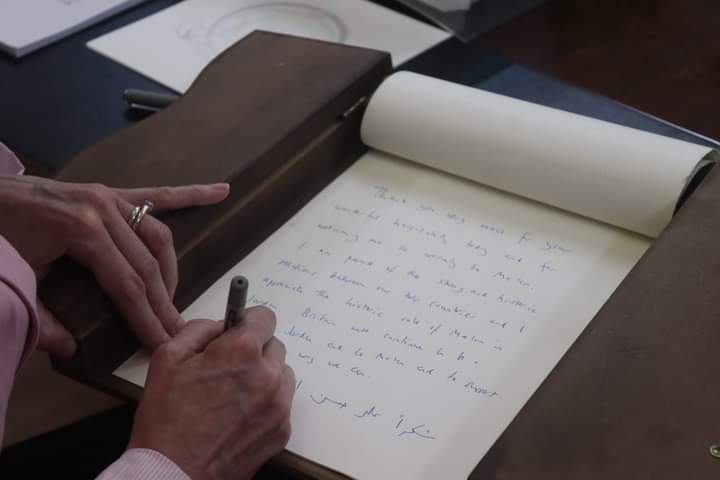 Thank you very much for your
wonderful hospitality today and for
welcoming me so warmly to Ma'an.
I am proud of the strong and historic
relations between our two countries and I
appreciate the historic role of Ma'an in
Jordan. Britain will continue to be
Jordan and to Ma'an and to support
way we can.
شكراً على